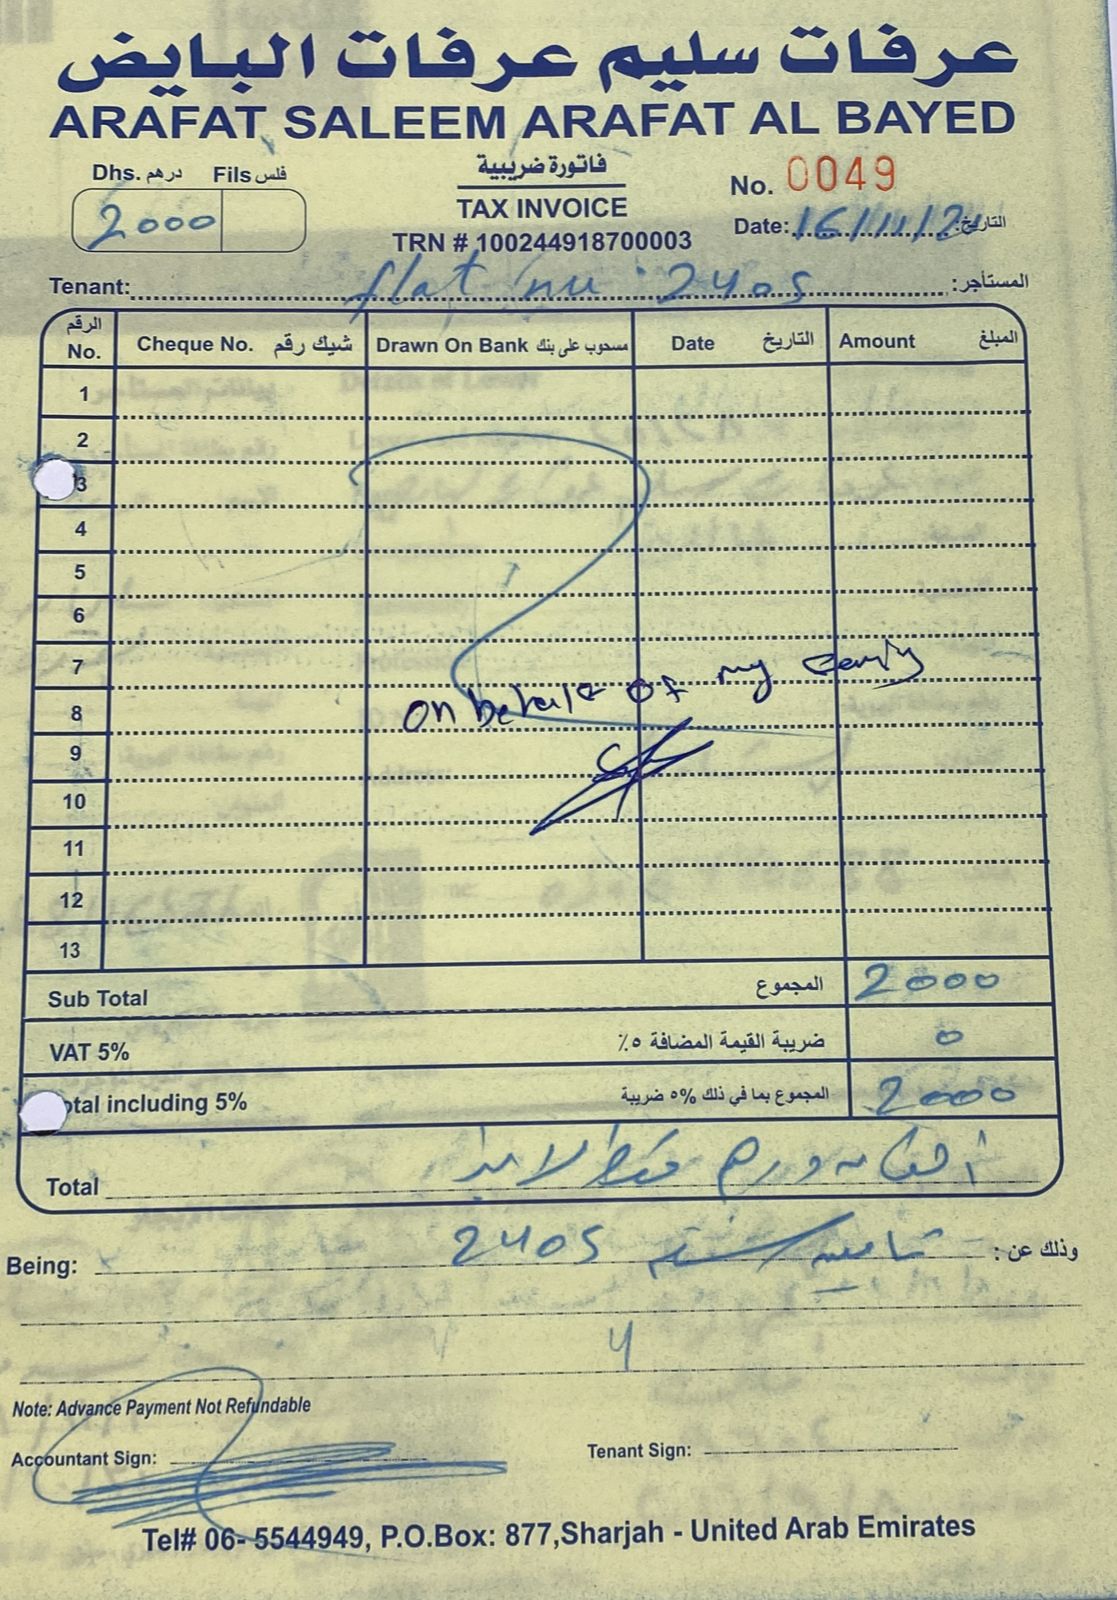 عرفات سليم عرفات البايض
ARAFAT SALEEM ARAFAT AL BAYED
Dhs. درهم Fils فلس
2000
فاتورة ضريبية
TAX INVOICE
TRN # 100244918700003
No. 0049
Date: 16/11/24 التاريخ:
Tenant: flat nu: 2405 المستأجر:
الرقم No. Cheque No. شيك رقم Drawn On Bank مسحوب على بنك Date التاريخ Amount المبلغ
1
2
3
4
5
6
7
8
9
10
11
12
13
on behalf of my
Sub Total المجموع 2000
VAT 5% ضريبة القيمة المضافة ٥٪ 0
otal including 5% المجموع بما في ذلك ٥% ضريبة 2000
Total درهم فقط لا غير
Being: تامين شقة 2405 وذلك عن:
4
Note: Advance Payment Not Refundable
Accountant Sign: Tenant Sign:
Tel# 06- 5544949, P.O.Box: 877,Sharjah - United Arab Emirates